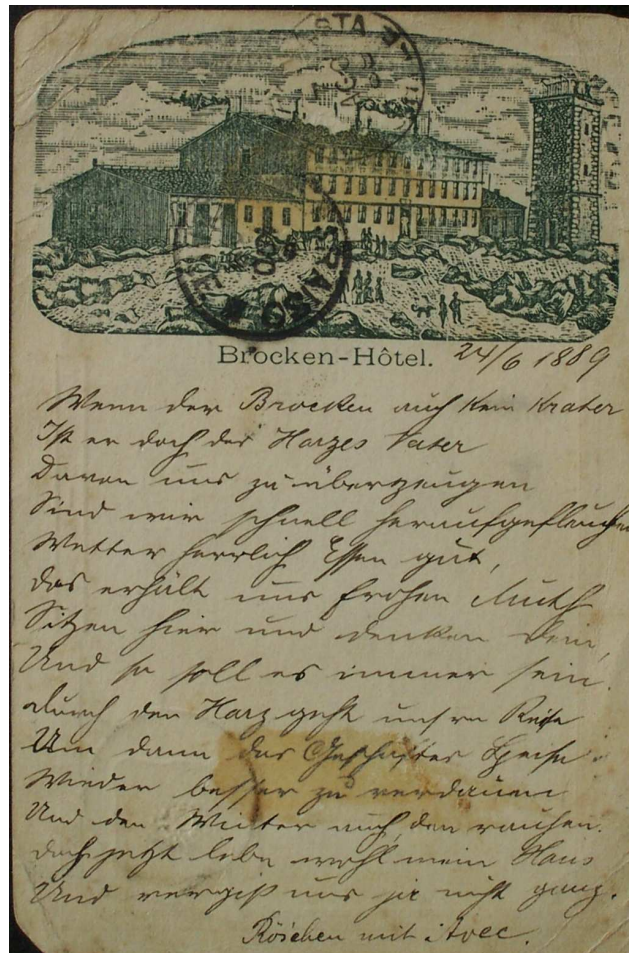 Brocken-Hôtel. 24/6 1889
Wenn der Brocken auch kein Krater
Ist er doch des Harzes Vater
Davon uns zu überzeugen
Sind wir schnell heraufgefleuchen
Wetter herrlich Essen gut,
Das erhält uns frohen Muth
Sitzen hier und denken Dein,
Und so soll es immer sein.
Durch den Harz geht unsre Reise
Um dann des Geschäftes Speise
Wieder besser zu verdauen
Und den Winter auch, den rauhen.
Doch jetzt lebe wohl mein Hans
Und vergiß uns ja nicht ganz.
Röschen mit